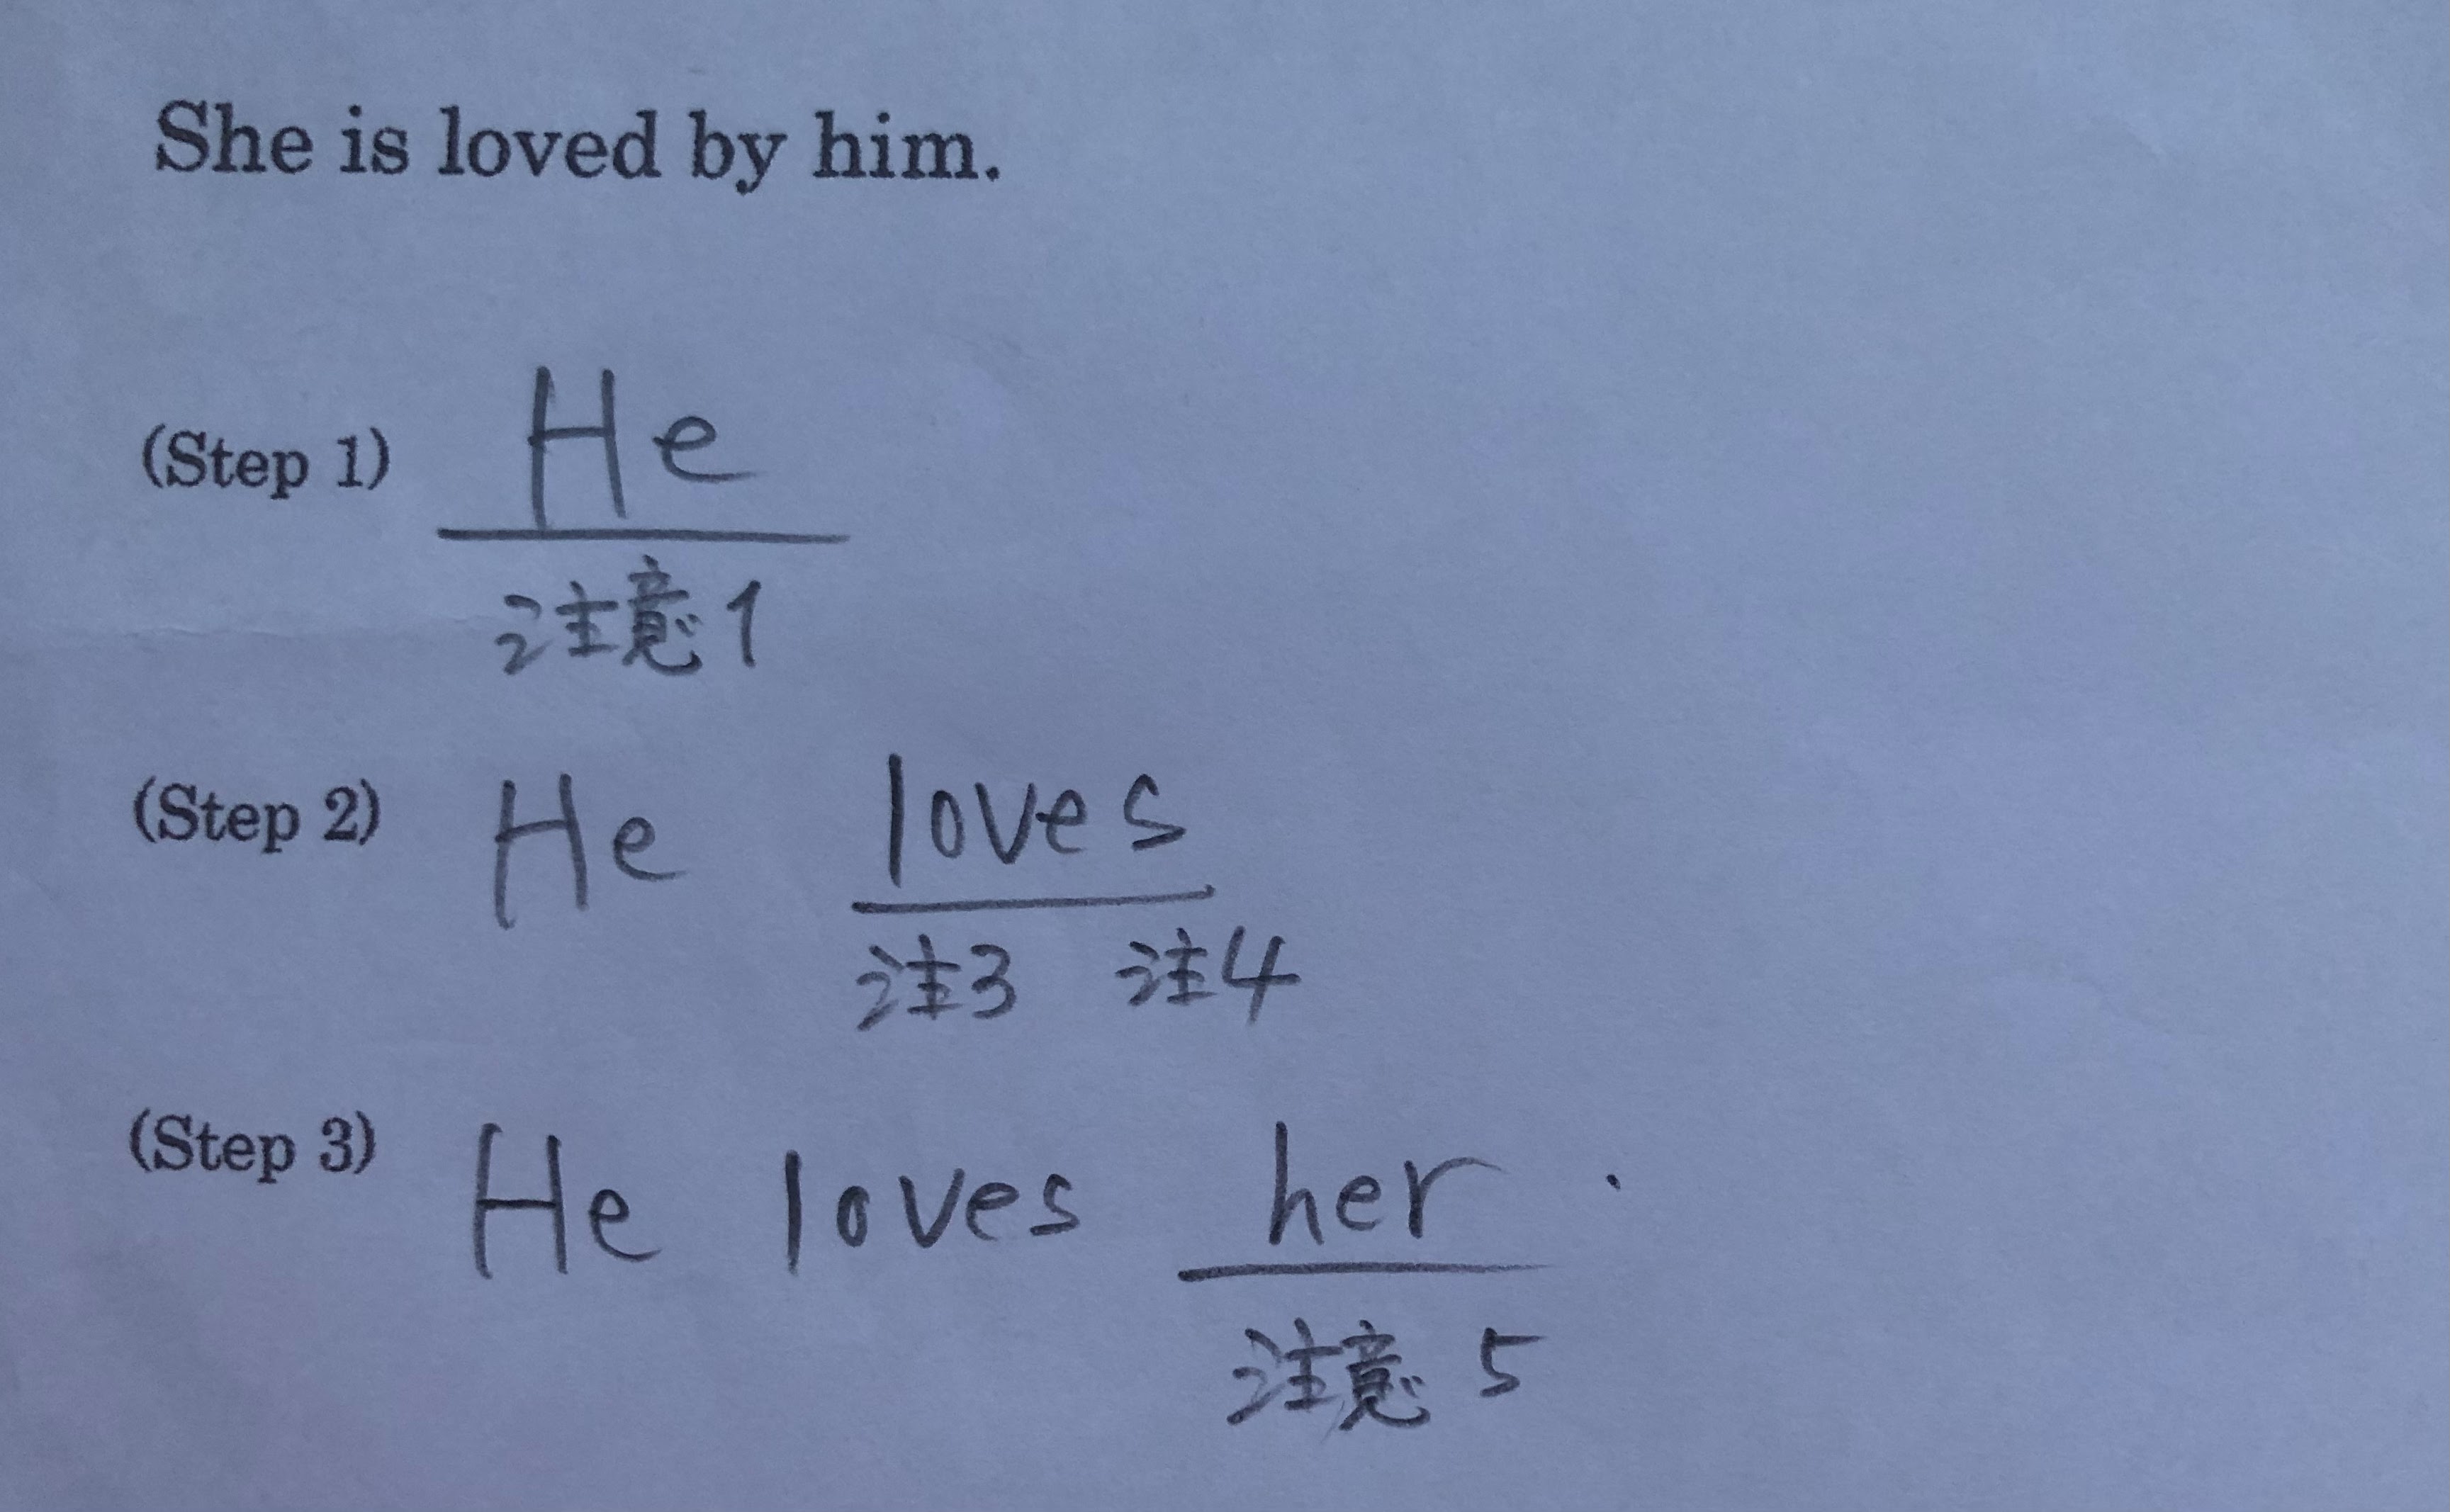 She is loved by him.
(Step 1) He
注意1
(Step 2) He loves
注3 注4
(Step 3) He loves her.
注意5